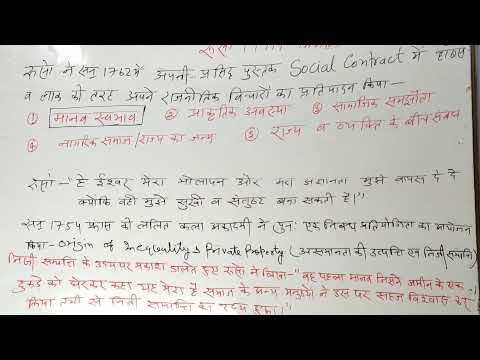 रूसो ने सन् 1762 में अपनी प्रसिद्ध पुस्तक Social Contract में हाब्स
व लाक की तरह अपने राजनीतिक विचारों का प्रतिपादन किया-
① मानव स्वभाव ② प्राकृतिक अवस्था ③ सामाजिक समझौता
④ नागरिक समाज/राज्य का जन्म ⑤ राज्य व व्यक्ति के बीच संबंध
रूसो- "हे ईश्वर मेरा भोलापन और मेरी अज्ञानता मुझे वापस दे दे
क्योंकि वही मुझे सुखी व संतुष्ट बना सकती है।"
सन् 1754 फ्रांस की ललित कला अकादमी ने पुनः एक निबन्ध प्रतियोगिता का आयोजन
किया- Origin of Inequality & Private Property (असमानता की उत्पत्ति एवं निजी सम्पत्ति)
निजी सम्पत्ति के उदय पर प्रकाश डालते हुए रूसो ने लिखा- "वह पहला मानव जिसने जमीन के एक
टुकडे को घेरकर कहा यह मेरा है समाज के अन्य मनुष्यों ने उस पर सहज विश्वास कर
किया तभी से निजी सम्पत्ति का उदय हुआ।"